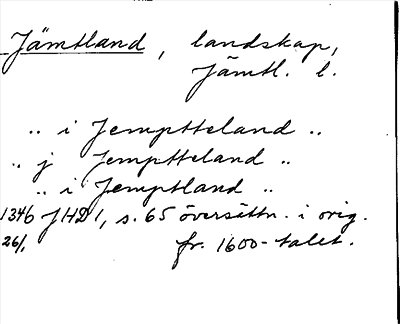 Jämtland, landskap,
Jämtl. l.
.. i Jemptteland ..
.. j Jemptteland ..
.. i Jemptland ..
1346 JHD 1, s. 65 översättn. i orig.
26/1. fr. 1600-talet.